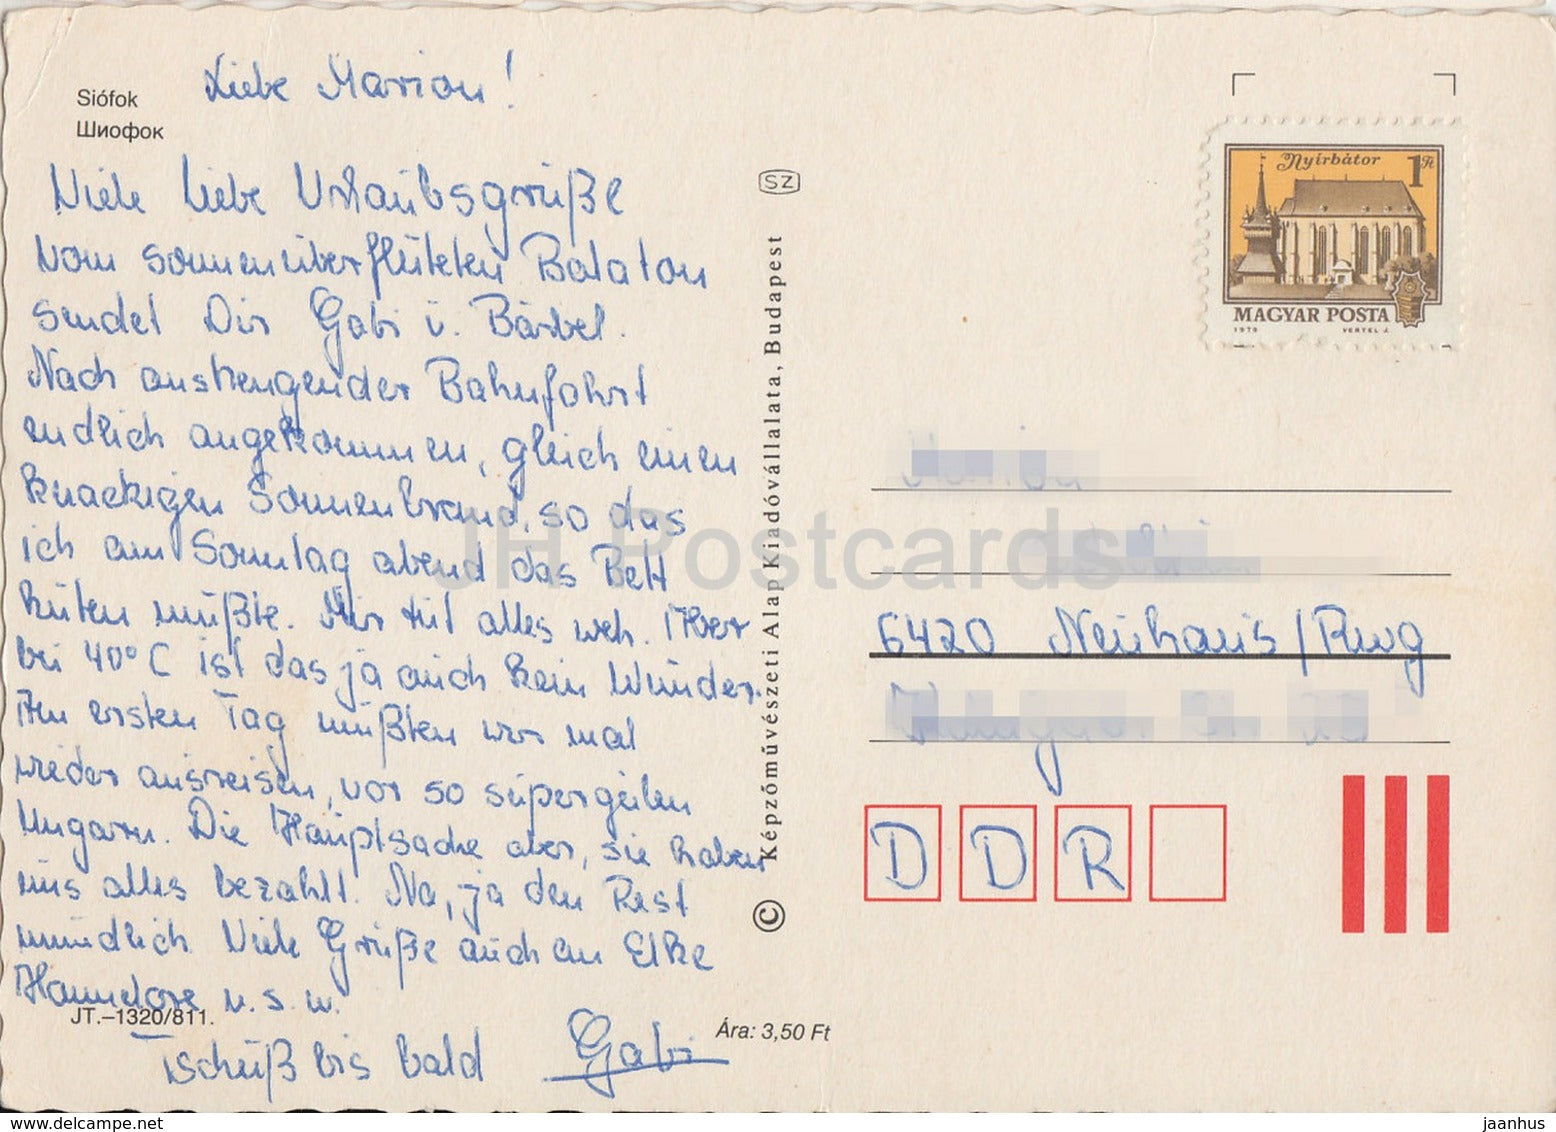 Siófok
Шиофок
Liebe Marion!
Viele liebe Urlaubsgrüße
vom sonnenüberfluteten Balaton
sendet Dir Gabi u. Bärbel.
Nach anstrengender Bahnfahrt
endlich angekommen, gleich einen
knackigen Sonnenbrand, so das
ich am Sonntag abend das Bett
hüten mußte. Mir tut alles weh. Aber
bei 40°C ist das ja auch kein Wunder.
Am ersten Tag mußten wir mal
wieder ausreisen, vor so supergeilen
Ungarn. Die Hauptsache aber, sie haben
uns alles bezahlt. Na, ja den Rest
mündlich. Viele Grüße auch an Elke
Hannelore u.s.w.
JT.–1320/811.
Tschüß bis bald Gabi
Ára: 3,50 Ft
SZ
© Képzőművészeti Alap Kiadóvállalata, Budapest
Nyírbátor 1 Ft
MAGYAR POSTA
1979 VERTEL J.
6420 Neuhaus/Rwg
DDR
JH Postcards
delcampe.net
jaanhus